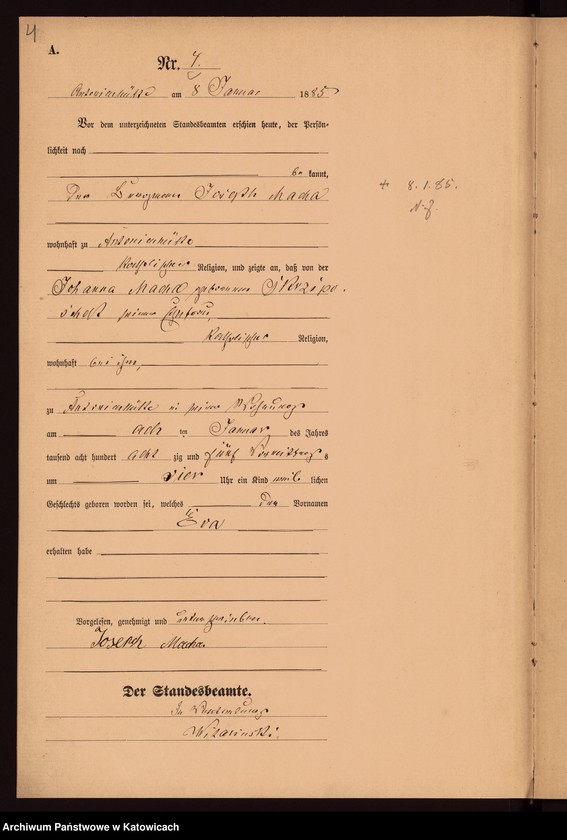 4
A.
Nr. 4.
Antonienhütte am 8 Januar 1885
Vor dem unterzeichneten Standesbeamten erschien heute, der Persön-
lichkeit nach
be kannt,
Der Bergmann Joseph Macha
+ 8.1.85.
wohnhaft zu Antonienhütte
katholischer Religion, und zeigte an, daß von der
Johanna Macha geborenen Skrzipo-
seiner Ehefrau,
katholischer Religion,
wohnhaft bei ihm,
zu Antonienhütte in seiner Wohnung
am acht ten Januar des Jahres
tausend acht hundert acht zig und fünf Vormittags
um vier Uhr ein Kind weib lichen
Geschlechts geboren worden sei, welches den Vornamen
Eva
erhalten habe
Vorgelesen, genehmigt und unterschrieben.
Joseph Macha
Der Standesbeamte.
In Vertretung
Archiwum Państwowe w Katowicach